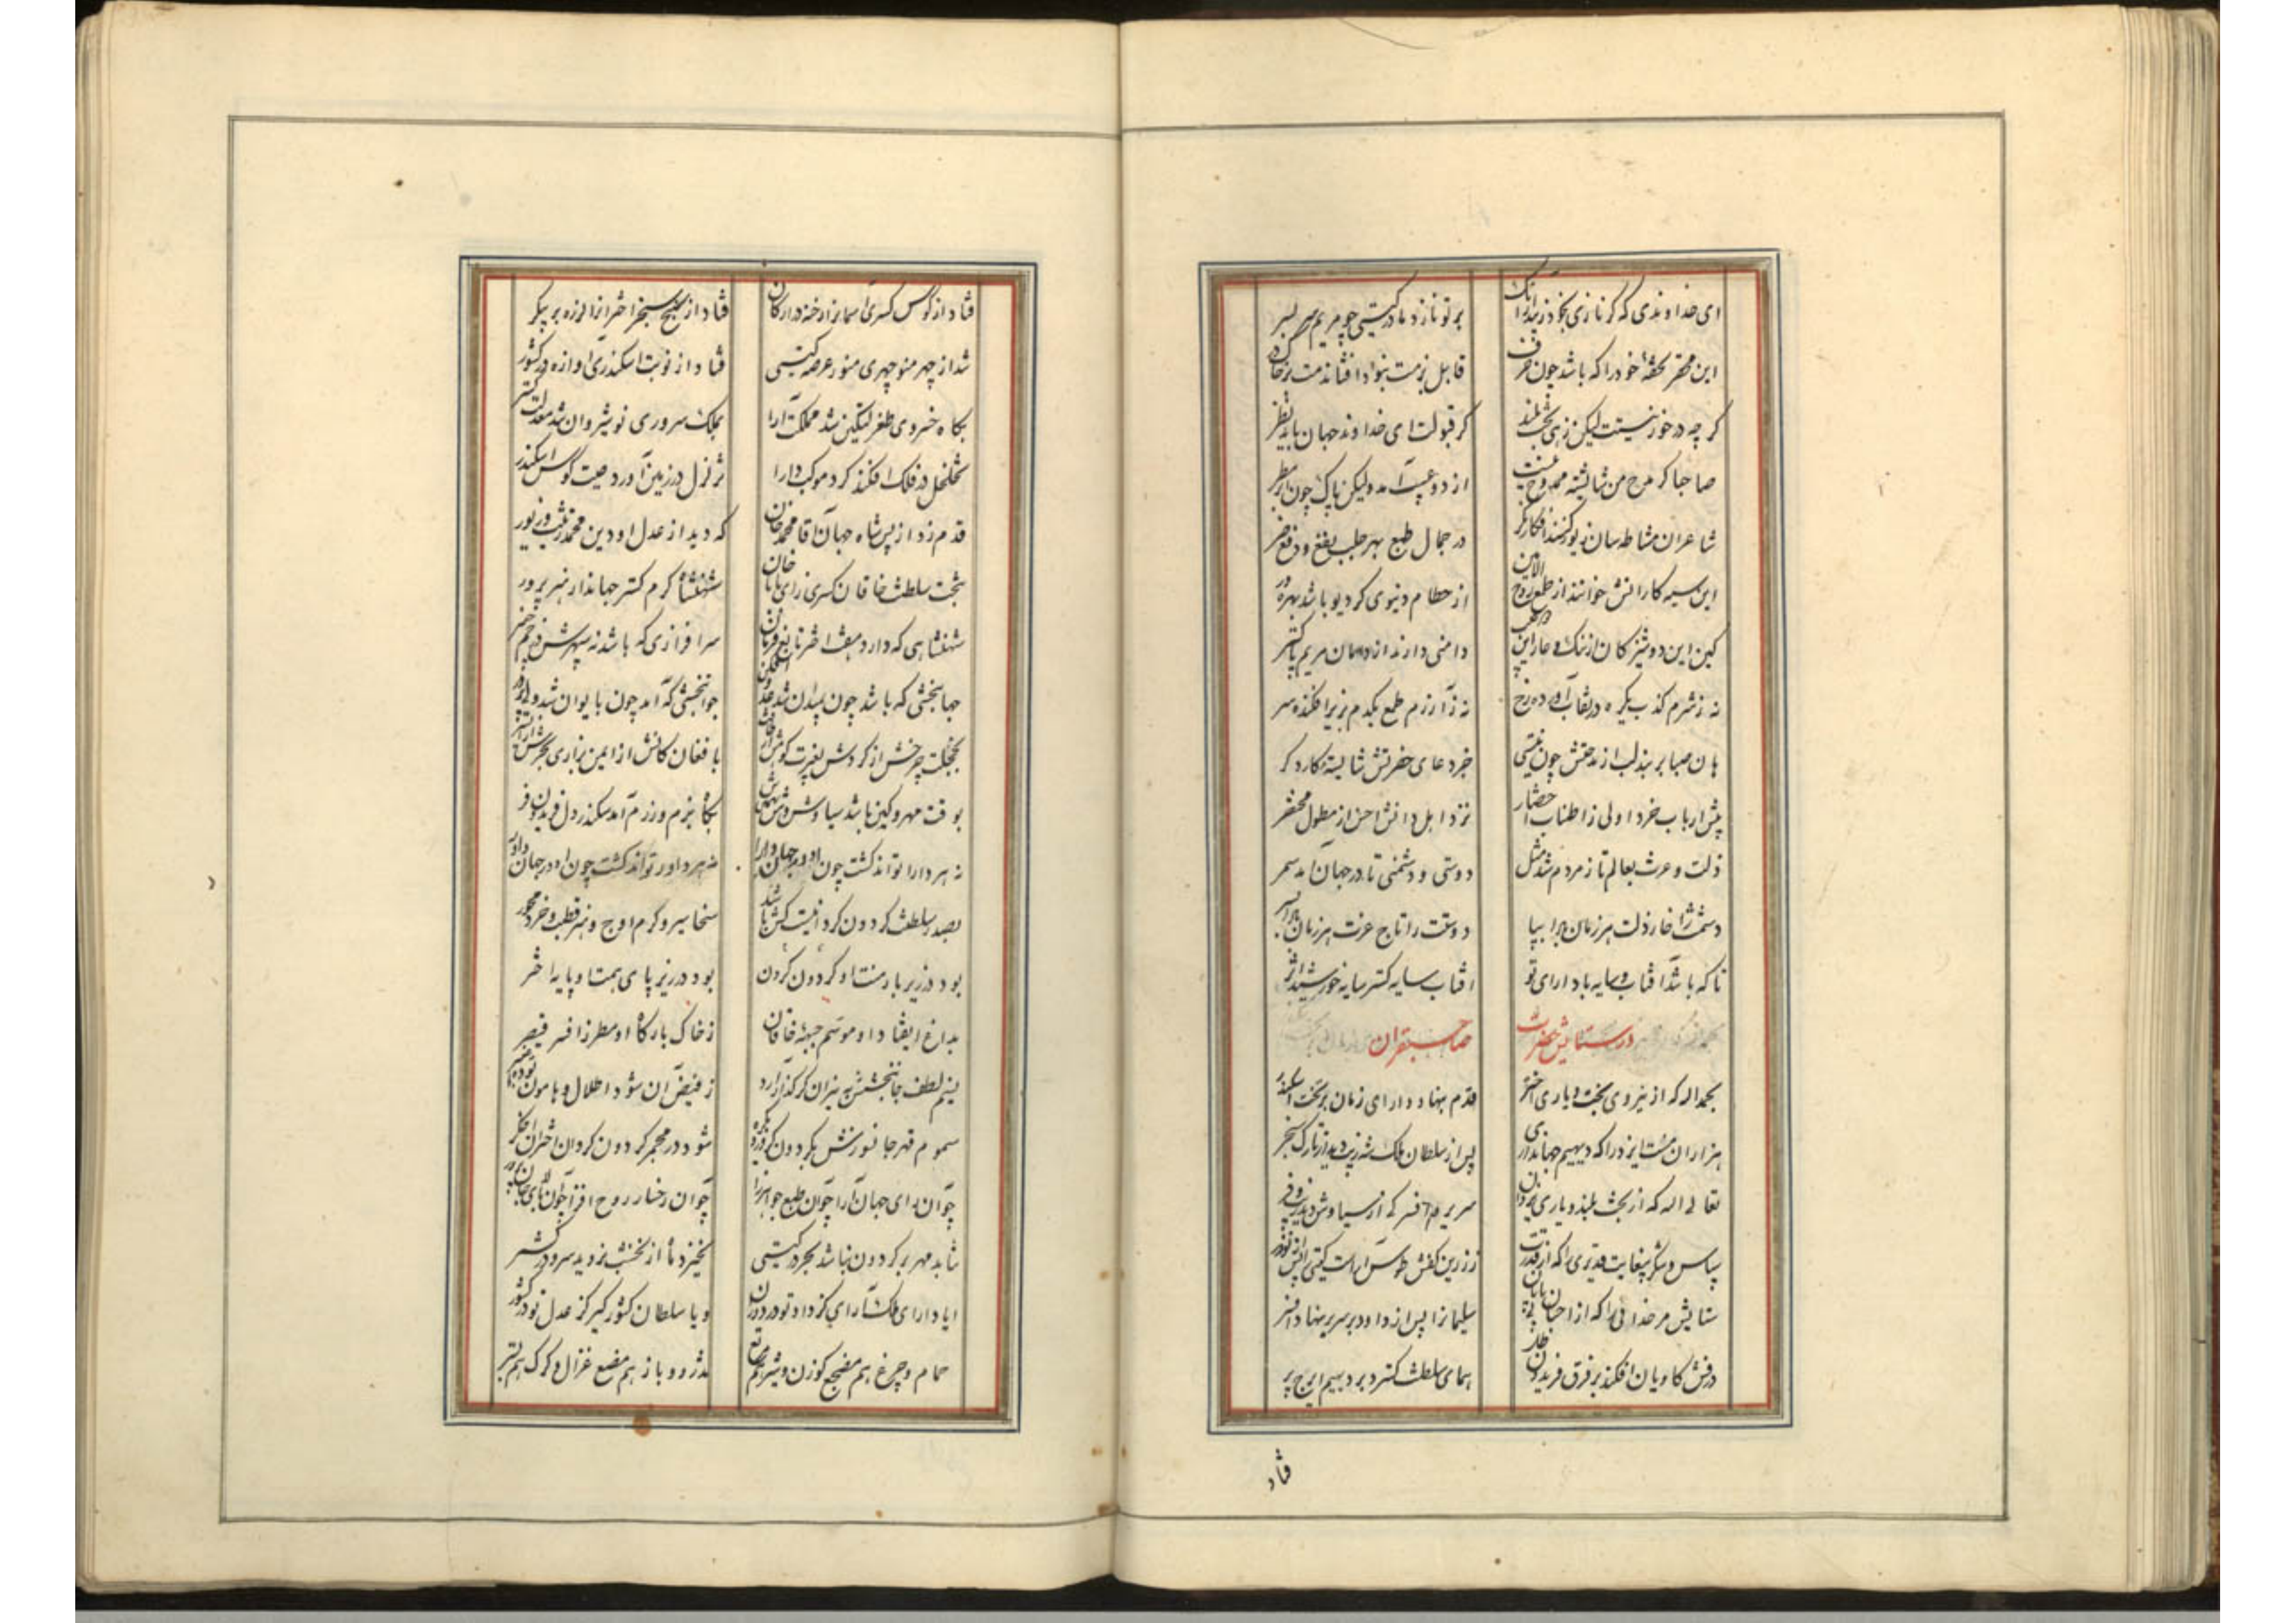 ای خداوندی که گر نازی بخود زیبد ترا
بر تو نازد مادر گیتی چو مریم بر پسر
این محقر تحفهٔ خود را که باشد چون
قابل بزمت بنود افشاندمت بر
گر چه در خور نیست لیکن زهی بخت بلند
گر قبولت ای خداوند جهان باید نظر
صاحبا گر مدح من شایسته ممدوح نیست
از دو عیب آمد ولیکن پاک چون
شاعران مشاطه سان زیور کنند افکار بکر
در جمال طبع بهر جلب نفع و دفع ضر
این سیه کاران خوانند از طبع روح الامین
از حطام دنیوی گر دیو باشد بهره ور
کین این دوشیزگان از ننگ و عار این
دامنی دارند از دامان مریم پاکتر
نه ز شرم کذب یکره در نقاب آورده رخ
نه ز آزرم طمع یکدم بزیر افکنده سر
هان صبا بربند لب از مدحتش چون نیستی
جز دعای حضرتش شایستهٔ کار دگر
پیش ارباب خرد اولی ز اطناب اختصار
نزد اهل دانش احسن از مطول مختصر
ذلت و عزت بعالم تا ز مردم شد مثل
دوستی و دشمنی تا در جهان آمد سمر
دشمنت را خار ذلت هر زمان بادا بپا
دوستت را تاج عزت هر زمان بادا بسر
تا که باشد آفتاب و سایه بادا رای تو
آفتاب سایه گستر سایه خورشید اثر
در ستایش حضرت صاحبقران
بحمدالله که از نیروی بخت و یاری اختر
قدم بنهاد دارای زمان بر تخت اسکندر
هزاران منت ایزد را که دیهیم جهانداری
پس از سلطان ملک شه زیب دید از تارک سنجر
تعالی الله که از بخت بلند و یاری یزدان
سریر و افسر کی از سیاوش دید زیب و فر
سپاس و شکر بیغایت قدیری را که از قدرت
ز زرین کفش طوس آراست گیتی را پس از نوذر
ستایش مر خدائی را که از احسان بی پایان
سلیمان را پس از داود بر سر بر نهاد افسر
درفش کاویان افکند بر فرق فریدون ظل
همای سلطنت گسترد بر دیهیم ایرج پر
فتاد
فتاد از کوس کسری آسمان را رخنه در ارکان
فتاد از صبح سنجر اختران را لرزه بر پیکر
شد از چهر منوچهری منور عرصه گیتی
فتاد از نوبت اسکندری آوازه در کشور
بگاه خسروی طغرلتکین شد مملکت آرا
بملک سروری نوشیروان شد معدلت گستر
تخلخل در فلک افکند گرد موکب دارا
تزلزل در زمین آورد صیت کوس اسکندر
قدم زد از پس شاه جهان آقا محمد خان
که دید از عدل او دین محمد زینت و زیور
بتخت سلطنت خاقان کسری رای بابا خان
شهنشاه کرم گستر جهاندار هنر پرور
شهنشاهی که دارد هفت اختر تابع فرمان
سرافرازی که باشد نه سپهرش در خم چنبر
جهانبخشی که باشد چون بمیدان شد عدو افکن
جوانبختی که آمد چون بایوان شد ولی پرور
بخجلت چرخش از گردش بغیرت کوهش از
با فغان کانش از ایمن بزاری بحرش از
بوقت مهر و کین باشد سیاوش وش
بگاه بزم و رزم آمد سکندر دل فریدون فر
نه هر دارا تواند گشت چون او در جهان دارا
نه هر داور تواند گشت چون او در جهان داور
بصدر سلطنت گردون گردانیست کش باشد
سخا سیر و کرم اوج و هنر قطب و خرد محور
بود در زیر بار منت او گردون گردون
بود در زیر پای همت او پایه اختر
بداغ انقیاد او موسم جبههٔ خاقان
ز خاک بارگاه او مطرز افسر قیصر
نسیم لطف جانبخشش به نیران گر گذار آرد
ز فیض آن شود اطلال و هامون توده عنبر
سموم قهر جانسوزش بگردون گر
شود در مجمر گردون گردان اختران اخگر
چو آن رای جهان آرا چو آن طبع جواهرزا
چو آن رخسار روح افزا چو آن جان پرور
نتابد مهر بر گردون نباشد بحر در گیتی
نخیزد ماه از نخشب نروید سرو در کشمر
ایا دارای ملک آرای کز داد تو در دوران
و یا سلطان کشورگیر کز عدل تو در کشور
حمام و چرغ هم مضجع گوزن و شیر هم مرتع
تذرو و باز هم مضجع غزال و گرگ هم بستر